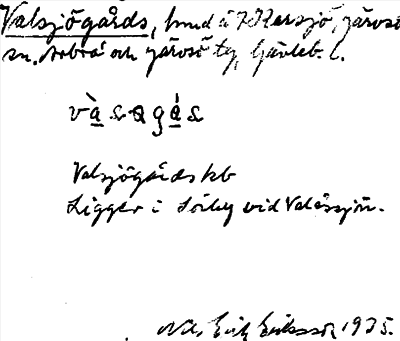 Valsjögårds, hmd å Kersjö, Järvsö
sn. Arbrå och Järvsö tg, Gävleb. l.
Valsjögårdskb
Ligger i Sörby vid Valåssjön.
Nils Erik Eriksson 1935.